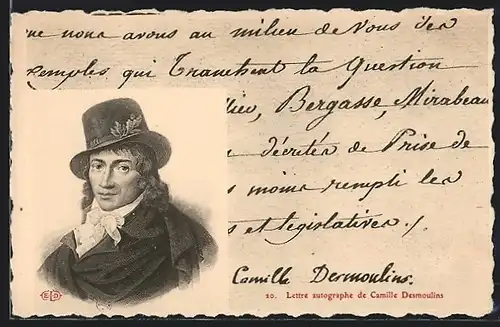 ne nous avons au milieu de Vous des
exemples qui Tranchent la Question
llier, Bergasse, Mirabeau
décrétés de Prise de
moins rempli les
s et legislatives /.
Camille Desmoulins.
20. Lettre autographe de Camille Desmoulins